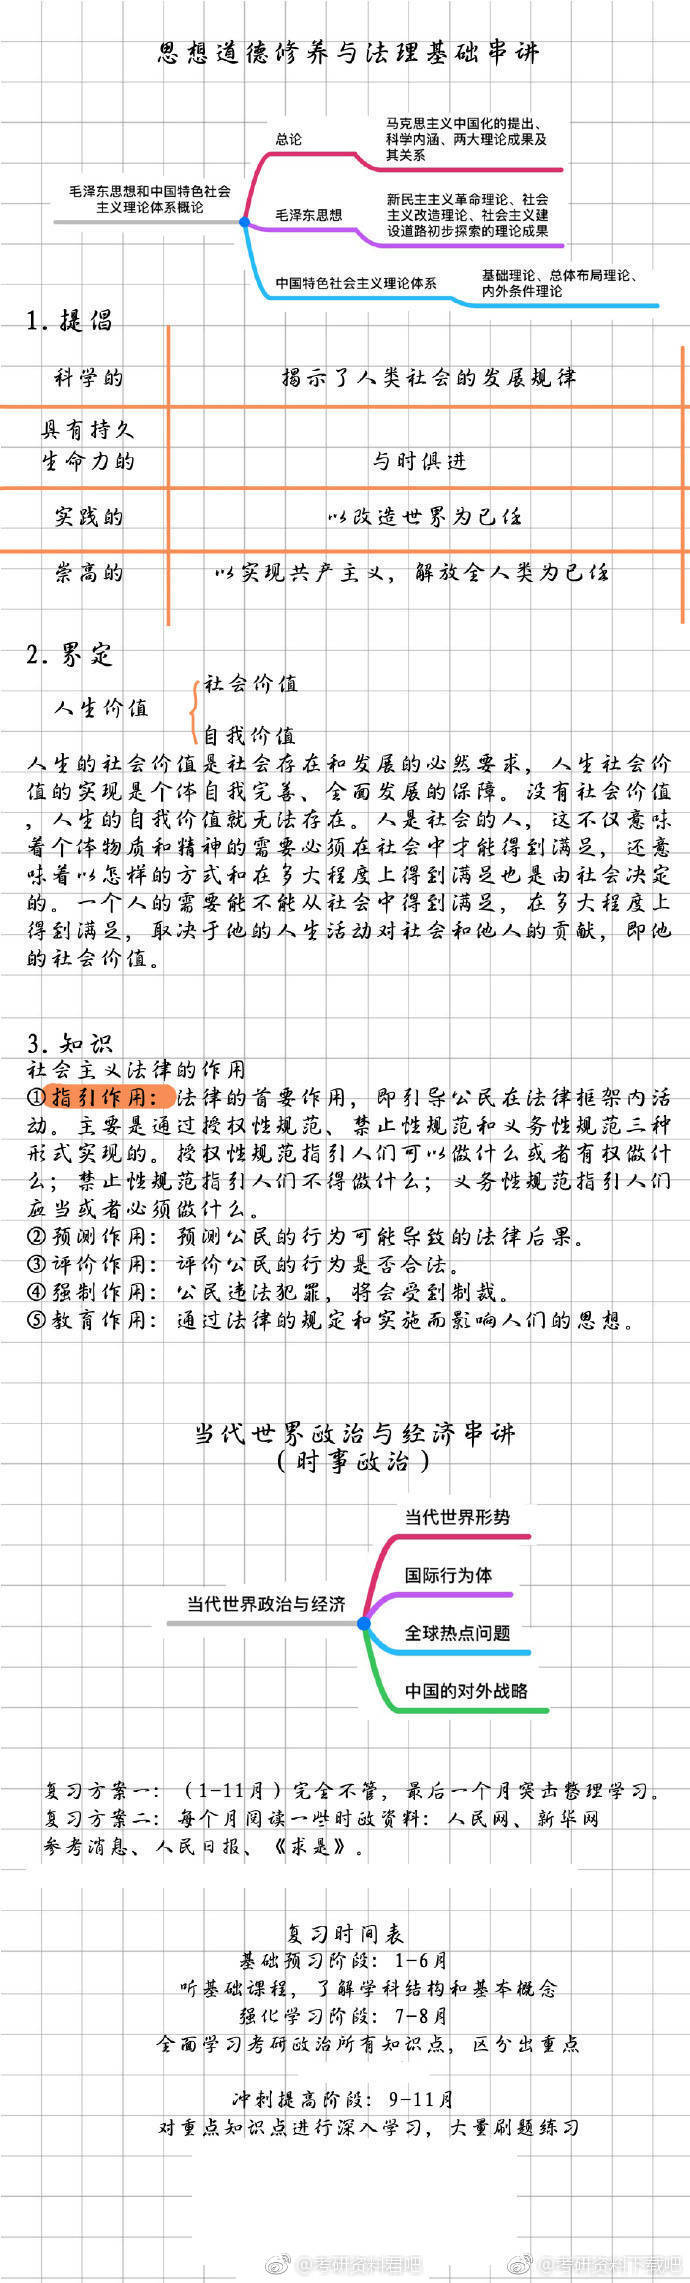 思想道德修养与法理基础串讲
毛泽东思想和中国特色社会
主义理论体系概论
总论
马克思主义中国化的提出、
科学内涵、两大理论成果及
其关系
毛泽东思想
新民主主义革命理论、社会
主义改造理论、社会主义建
设道路初步探索的理论成果
中国特色社会主义理论体系
基础理论、总体布局理论、
内外条件理论
1. 提倡
科学的
揭示了人类社会的发展规律
具有持久
生命力的
与时俱进
实践的
以改造世界为已任
崇高的
以实现共产主义，解放全人类为已任
2. 界定
人生价值
社会价值
自我价值
人生的社会价值是社会存在和发展的必然要求，人生社会价
值的实现是个体自我完善、全面发展的保障。没有社会价值
，人生的自我价值就无法存在。人是社会的人，这不仅意味
着个体物质和精神的需要必须在社会中才能得到满足，还意
味着以怎样的方式和在多大程度上得到满足也是由社会决定
的。一个人的需要能不能从社会中得到满足，在多大程度上
得到满足，取决于他的人生活动对社会和他人的贡献，即他
的社会价值。
3. 知识
社会主义法律的作用
①指引作用：法律的首要作用，即引导公民在法律框架内活
动。主要是通过授权性规范、禁止性规范和义务性规范三种
形式实现的。授权性规范指引人们可以做什么或者有权做什
么；禁止性规范指引人们不得做什么；义务性规范指引人们
应当或者必须做什么。
②预测作用：预测公民的行为可能导致的法律后果。
③评价作用：评价公民的行为是否合法。
④强制作用：公民违法犯罪，将会受到制裁。
⑤教育作用：通过法律的规定和实施而影响人们的思想。
当代世界政治与经济串讲
（时事政治）
当代世界政治与经济
当代世界形势
国际行为体
全球热点问题
中国的对外战略
复习方案一：（1-11月）完全不管，最后一个月突击整理学习。
复习方案二：每个月阅读一些时政资料：人民网、新华网
参考消息、人民日报、《求是》。
复习时间表
基础预习阶段：1-6月
听基础课程，了解学科结构和基本概念
强化学习阶段：7-8月
全面学习考研政治所有知识点，区分出重点
冲刺提高阶段：9-11月
对重点知识点进行深入学习，大量刷题练习
@考研资料君吧
@考研资料下载吧